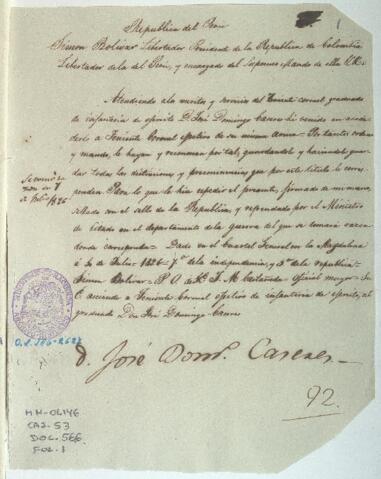 Republica del Peru
1
Simon Bolivar Libertador Presidente de la Republica de Colombia
Libertador de la del Perú, y encargado del Supremo Mando de ella &&.
Atendiendo a los meritos y servicios del Teniente coronel graduado
de infanteria de ejercito D. José Domingo Caseres he venido en
a Teniente Coronel efectivo de su misma arma. Por tanto ordeno
y mando, le hayan y reconoscan por tal, guardandole y haciendole guar
dar todas las distinciones y preeminencias que por este titulo le corres
penden. Para lo que le hice expedir el presente, firmado de mi mano,
sellado con el sello de la Republica, y refrendado por el Ministro
de Estado en el departamento de la guerra del que se tomará razon
donde corresponda. Dado en el Cuartel General en la Magdalena
á de Febrero 1826 7º de la independencia, y 3º de la republica
Simon Bolivar. P. A. de J. M. Castañeda oficial mayor. S.
E. asciende a Teniente Coronel efectivo de infanteria de ejercito, al
graduado Don José Domingo Caseres
Se tomó ra
zon en 7
de Feb. 1826
O.L. 146-2627
D. José Dom.º Caseres
92.
MH-OL146
CAJ. 53
DOC. 566
FOL. 1